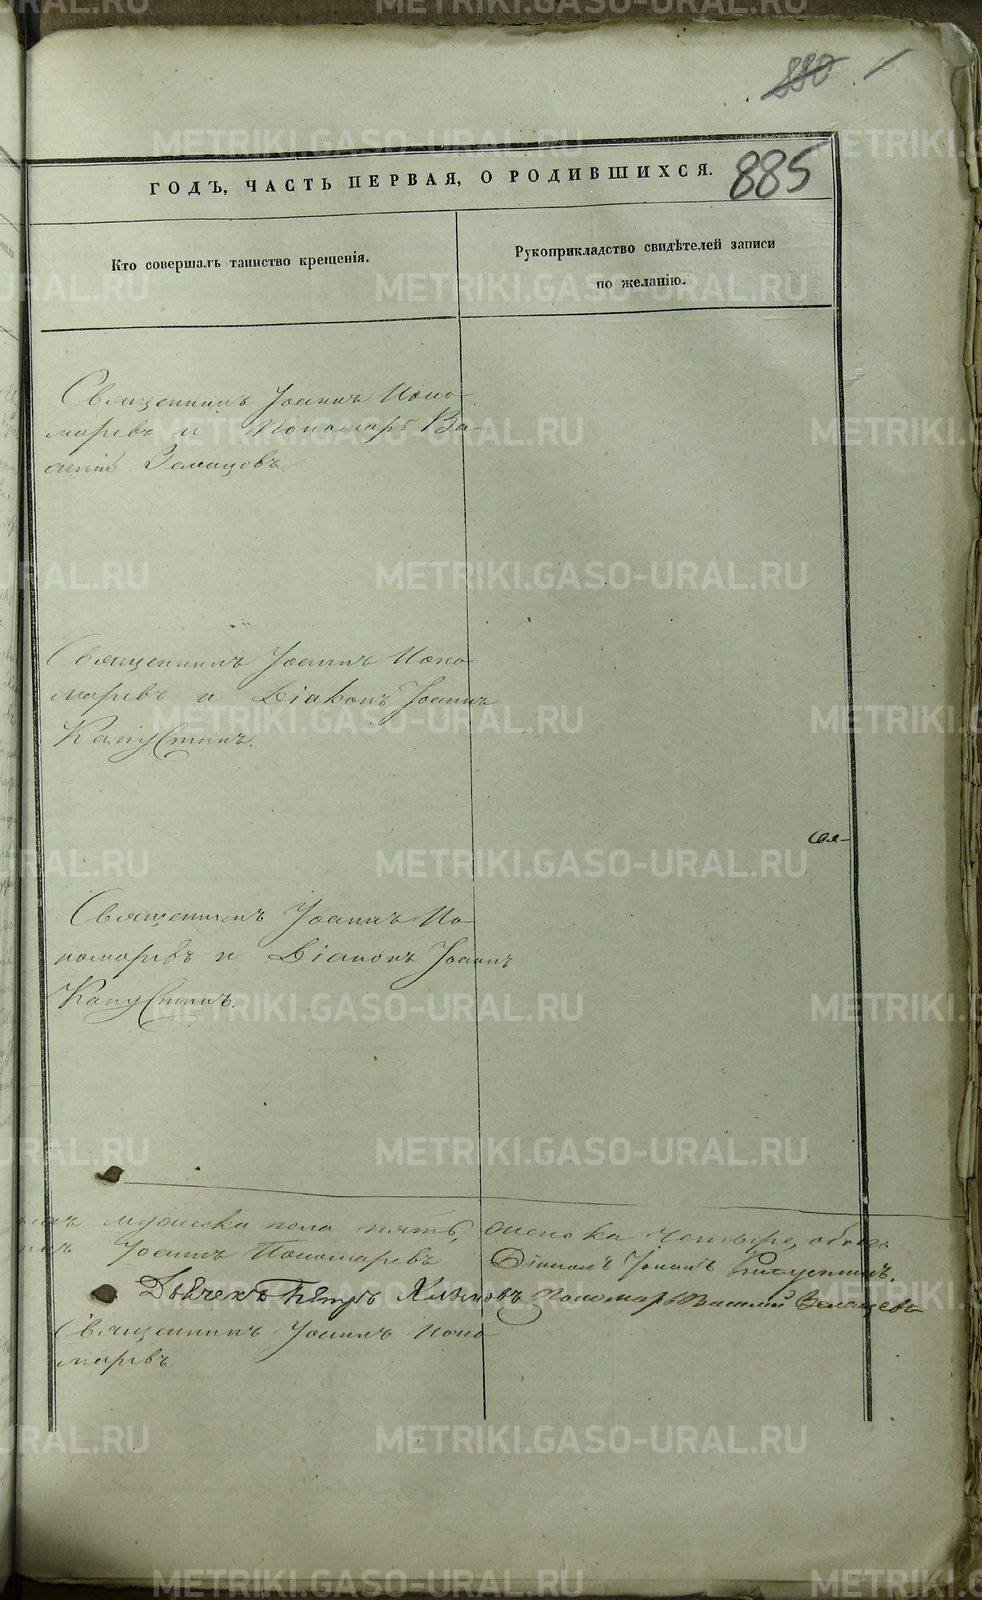 880
ГОДЪ, ЧАСТЬ ПЕРВАЯ, О РОДИВШИХСЯ.
885
Кто совершалъ таинство крещенія.
Рукоприкладство свидѣтелей записи
по желанію.
Священникъ Іоаннъ Поно-
маревъ и Пономарь Ва-
силій
Священникъ Іоаннъ Поно-
маревъ и Діаконъ Іоаннъ
Капустинъ.
Священникъ Іоаннъ По-
номаревъ и Діаконъ Іоаннъ
Капустинъ.
мужеска пола пять, женска четыре, обоего
Іоаннъ Пономаревъ Діаконъ Іоаннъ Капустинъ.
Дьячекъ Петръ Пономарь Василій
Священникъ Іоаннъ Поно-
маревъ
METRIKI.GASO-URAL.RU